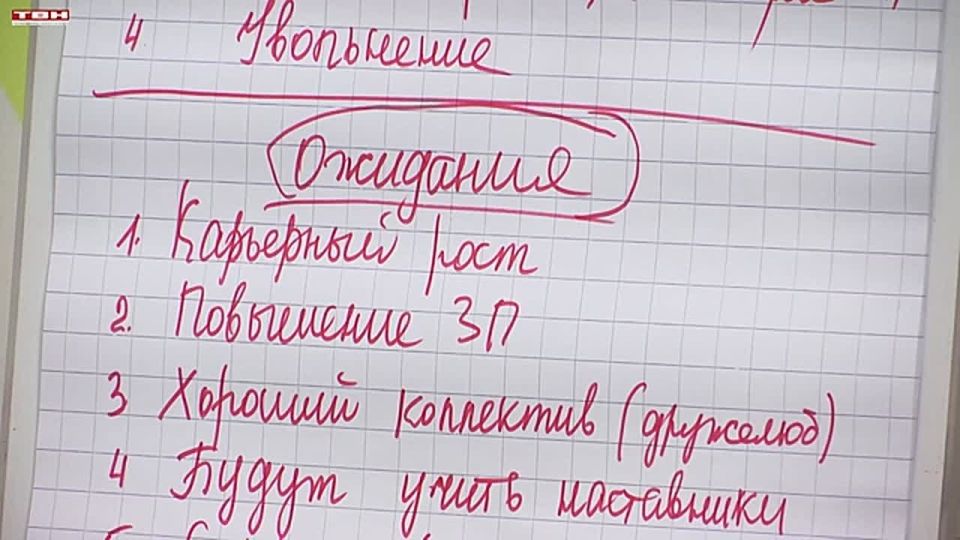 ТВН
4 Увольнение
Ожидания
1. Карьерный рост
2. Повышение ЗП
3 Хороший коллектив (дружелюб)
4 Будут учить наставники